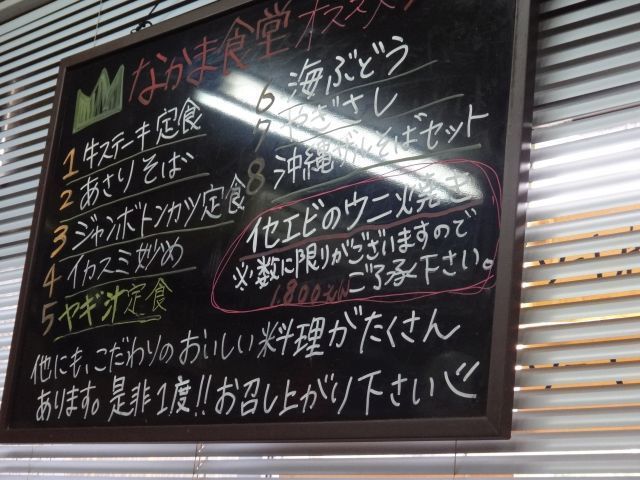 なかま食堂 オススメ
1 牛ステーキ定食
2 あさりそば
3 ジャンボトンカツ定食
4 イカスミ炒め
5 ヤギ汁定食
6 海ぶどう
7 やぎさし
8 沖縄 そばセット
イセエビのウニ焼き
※数に限りがございますので
ご了承下さい。
1,800えん
他にも、こだわりのおいしい料理がたくさん
あります。是非1度!!お召し上がり下さい